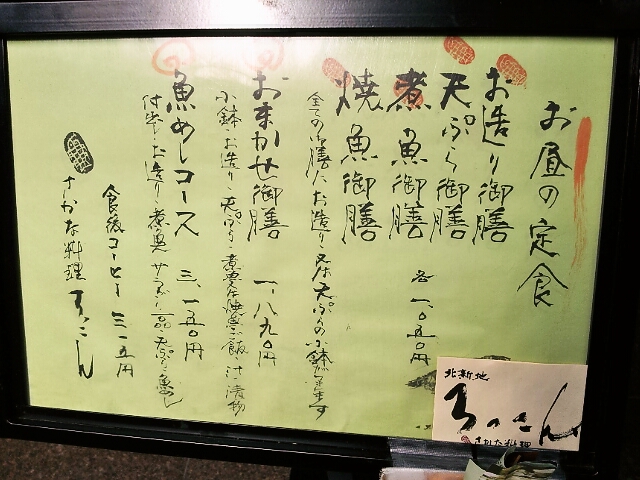 お昼の定食
お造り御膳
天ぷら御膳
煮魚御膳
焼魚御膳
各一、〇五〇円
全ての御膳に、お造り又は天ぷらの小鉢が付きます
おまかせ御膳 一、八九〇円
小鉢、お造り、天ぷら、煮魚又は焼魚、ご飯、汁、漬物
魚めしコース 三、一五〇円
付出し、お造り、煮魚、サラダ、一品、天ぷら、魚めし
食後コーヒー 三一五円
さかな料理 ろっこん
北新地
ろっこん
さかな料理